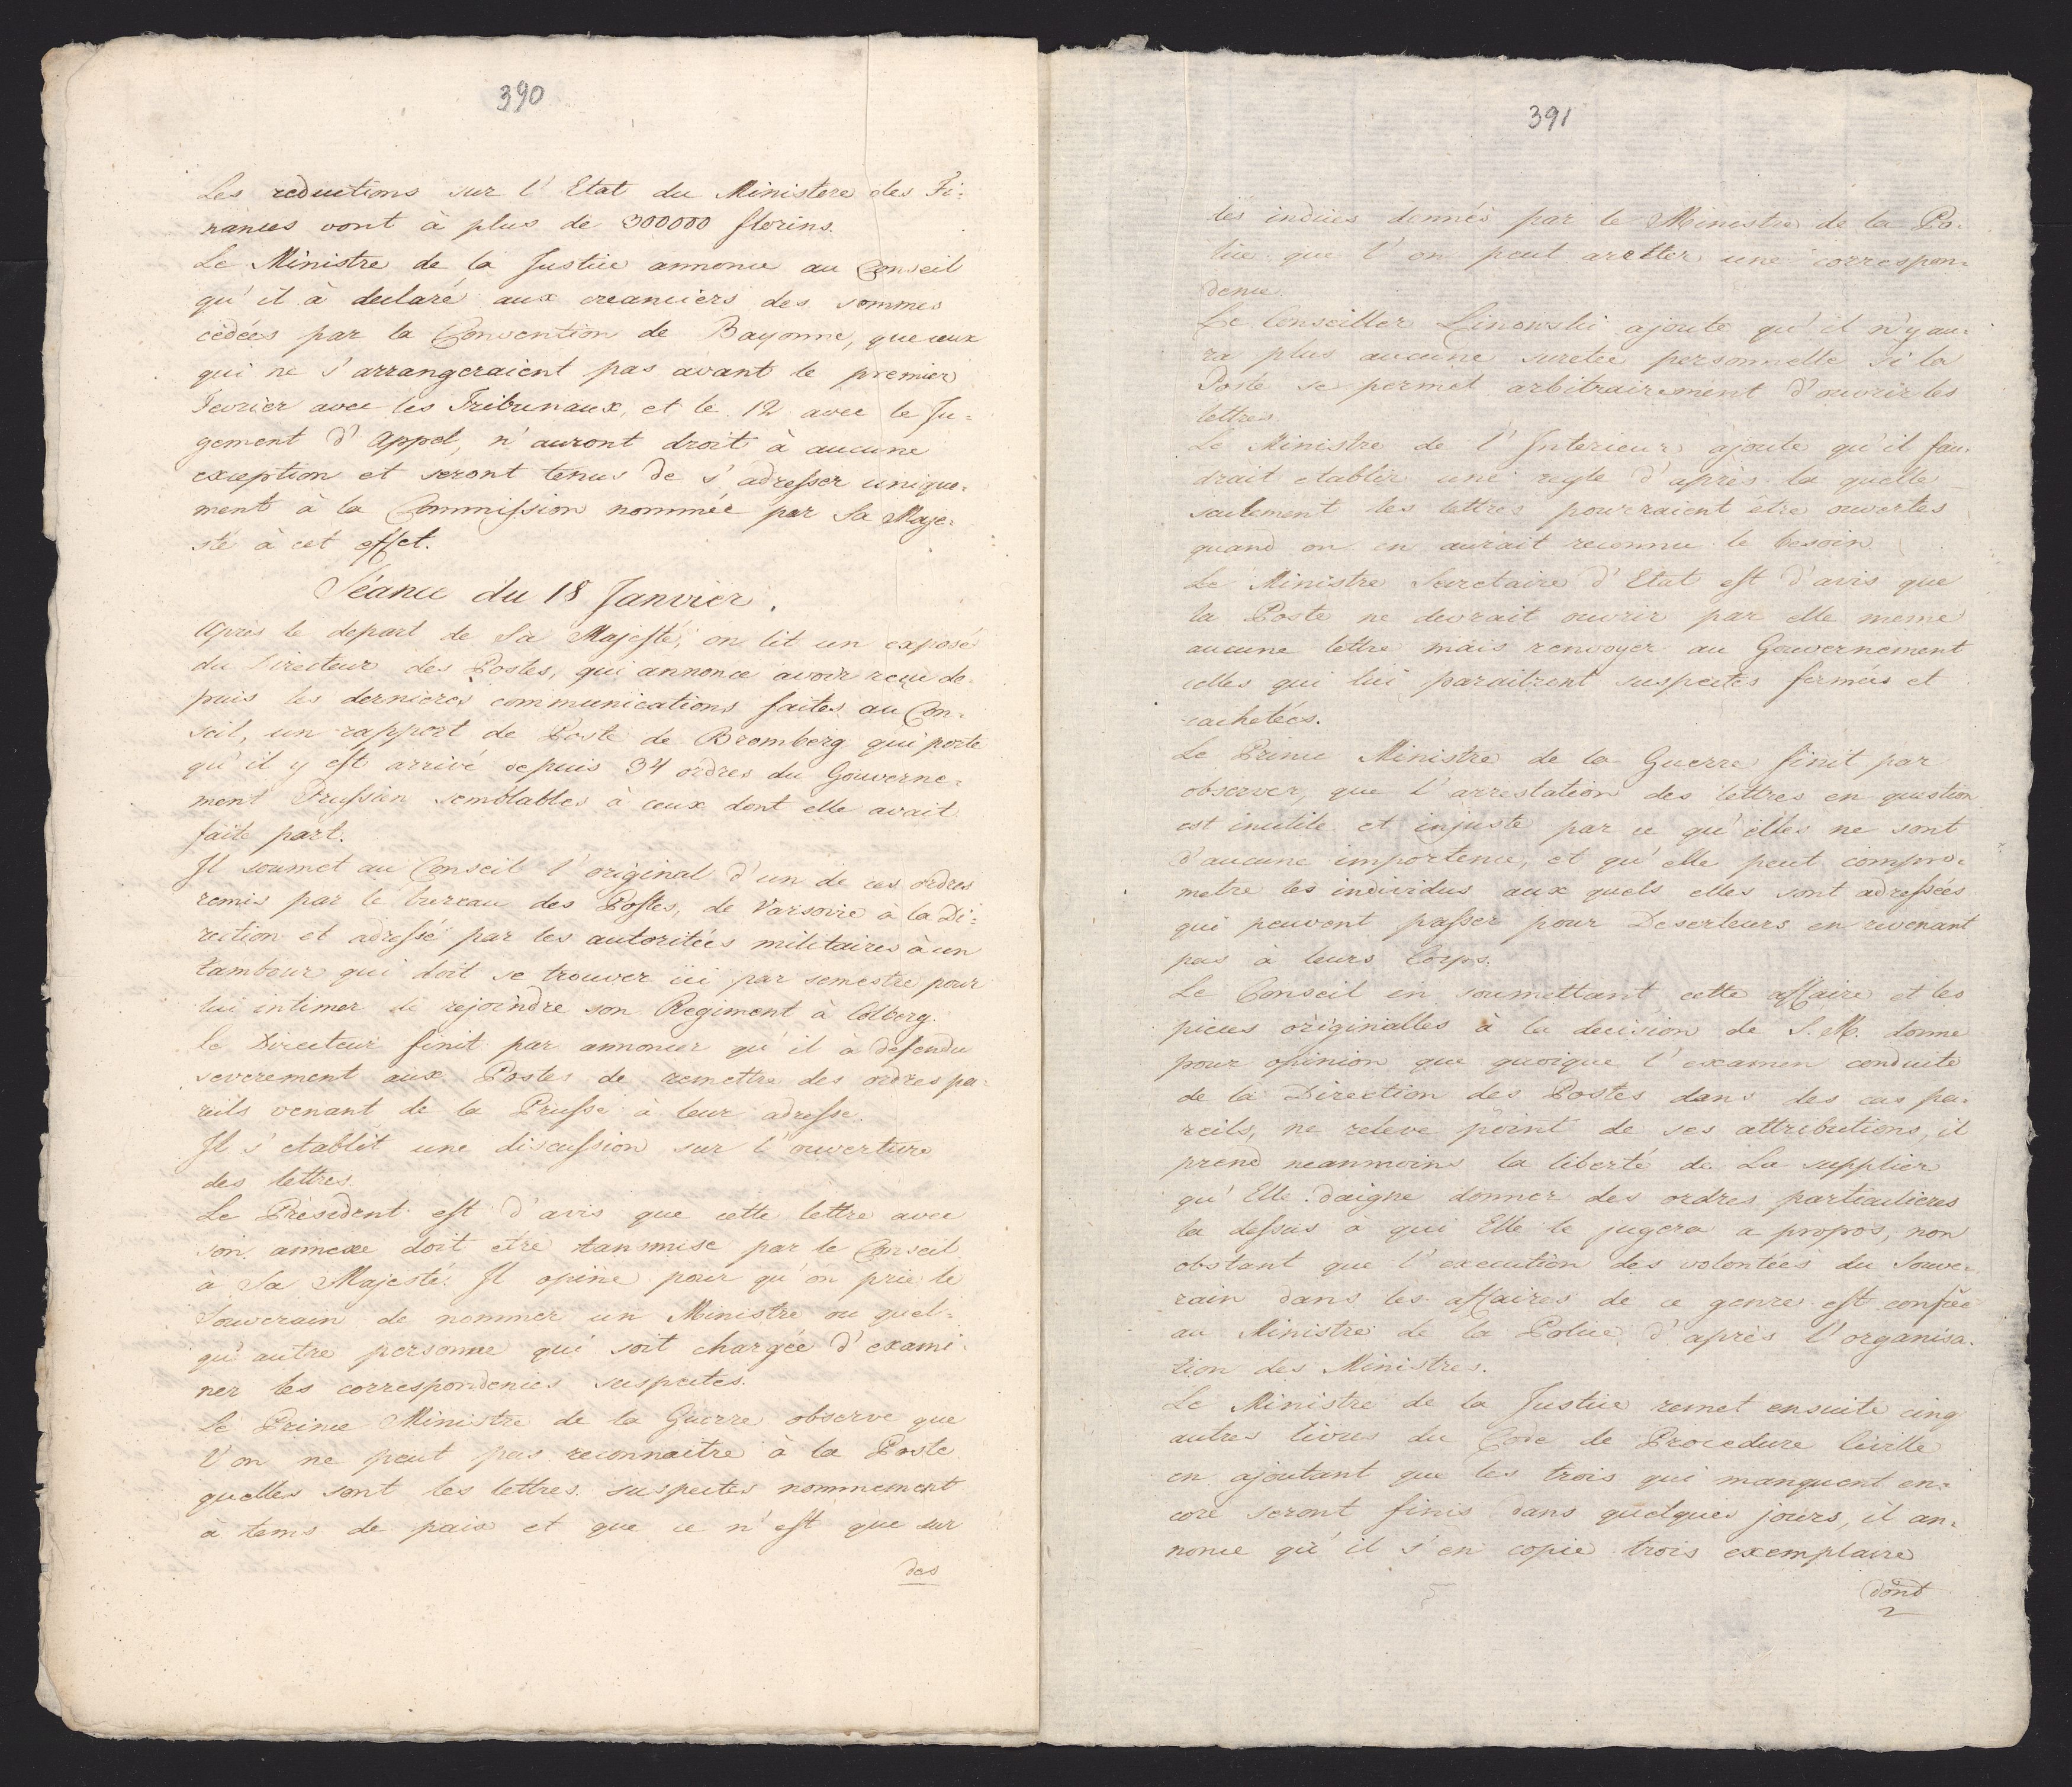 390
Les reductions sur l' Etat du Ministere des Fi=
nances vont à plus de 300000 florins.
Le Ministre de la Justice annonce au Conseil
qu'il à declaré aux creanciers des sommes
cèdées par la Convention de Bayonne, que ceux
qui ne s'arrangeraient pas avant le premier
Fevrier avec les Tribunaux, et le 12 avec le Ju=
gement d'Appel, n'auront droit à aucune
exception et seront tenus de s'adresser unique=
ment à la Commission nommée par Sa Maje=
sté à cet effet.
Séance du 18 Janvier.
Après le depart de Sa Majesté, on lit un exposé
du Directeur des Postes, qui annonce avoir reçu de=
puis les dernieres communications faites au Con=
seil, un rapport de Poste de Bromberg qui porte
qu'il y est arrivé depuis 34 ordres du Gouverne=
ment Prussien semblables à ceux dont elle avait
faite part.
Il soumet au Conseil l'original d'un de ces ordres
remis par le bureau des Postes, de Varsovie à la Di=
rection et adressé par les autoritées militaires à un
tambour qui doit se trouver ici par semestre pour
lui intimer de rejoindre son Regiment à Colberg.
Le Directeur finit par annoncer qu'il a defendu
severement aux Postes de remettre des ordres pa=
reils venant de la Prusse à leur adresse.
Il s'etablit une discussion sur l'ouverture
des lettres.
Le President est d'avis que cette lettre avec
son annexe doit etre tansmise par le Conseil
à Sa Majesté. Il opine pour qu'on prie le
Souverain de nommer un Ministre ou quel=
qu'autre personne qui soit chargée d'exami=
ner les correspondences suspectes.
Le Prince Ministre de la Guerre observe que
l'on ne peut pas reconnaitre à la Poste
quelles sont les lettres suspectes nommement
à tems de paix et que ce n'est que sur
des
391
les indices donnés par le Ministre de la Po=
lice que l'on peut aretter une correspon=
dence.
Le Conseiller Linowski ajoute qu'il n'y au=
ra plus aucune suretée personnelle si la
Poste se permet arbitrairement d'ouvrir les
lettres.
Le Ministre de l'Interieur ajoute qu'il fau=
drait etablir une regle d'après la quelle
seulement les lettres pourraient être ouvertes
quand on en aurait reconnu le besoin
Le Ministre Secretaire d'Etat est d'avis que
la Poste ne devrait ouvrir par elle meme
aucune lettre mais renvoyer au Gouvernement
celles qui lui paraitront suspectes fermées et
cachetées.
Le Prince Ministre de la Guerre finit par
observer, que l'arrestation des lettres en question
est inutile et injuste par ce qu'elles ne sont
d'aucune importence, et qu'elle peut compro=
metre les individus aux quels elles sont adressées
qui peuvent passer pour Deserteurs en revenant
pas à leurs Corps.
Le Conseil en soumettant cette affaire et les
pieces originalles à la decision de S. M. donne
pour opinion que quoique l'examen conduite
de la Direction des Postes dans des cas pa=
reils, ne releve point de ses attributions, il
prend neanmoins la liberté de La supplier
qu'Elle daigne donner des ordres particulieres
la dessus a qui Elle le jugera a propos, non
obstant que l'execution des volontées du Souve=
rain dans les affaires de ce genre est confiée
au Ministre de la Police d'après l'organisa=
tion des Ministres.
Le Ministre de la Justice remet ensuite cinq
autres livres du Code de Procedure Civille
en ajoutant que les trois qui manquent en=
core seront finis dans quelques jours, il an=
nonce qu'il s'en copie trois exemplaire
dont